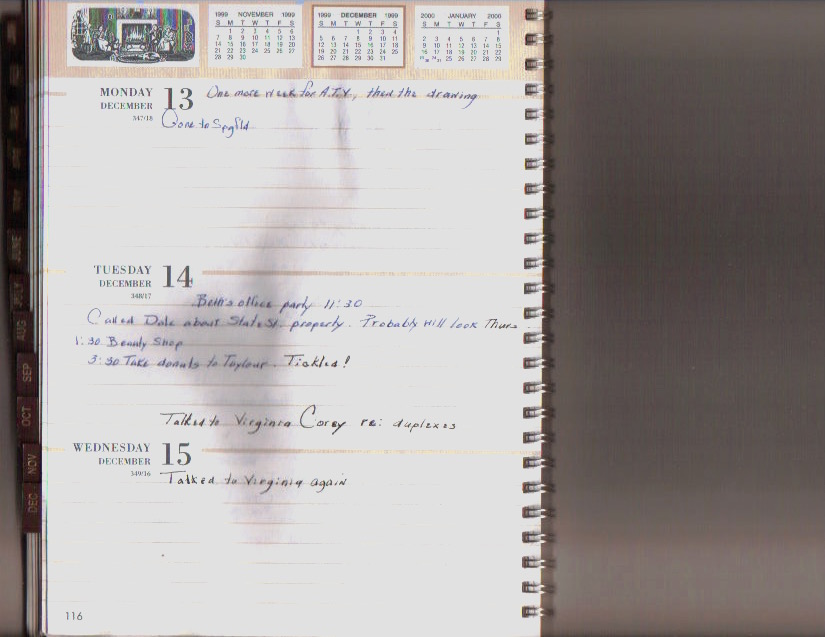 1999 NOVEMBER 1999
S M T W T F S
1 2 3 4 5 6
7 8 9 10 11 12 13
14 15 16 17 18 19 20
21 22 23 24 25 26 27
28 29 30
1999 DECEMBER 1999
S M T W T F S
1 2 3 4
5 6 7 8 9 10 11
12 13 14 15 16 17 18
19 20 21 22 23 24 25
26 27 28 29 30 31
2000 JANUARY 2000
S M T W T F S
1
2 3 4 5 6 7 8
9 10 11 12 13 14 15
16 17 18 19 20 21 22
23/30 24/31 25 26 27 28 29
MONDAY 13 One more week for A.T.V., then the drawing
DECEMBER
347/18 Gone to Spgfld
TUESDAY 14
DECEMBER
348/17
Beth's office party 11:30
Called Dale about State St. property. Probably will look Thurs
1:30 Beauty Shop
3:30 Take donuts to Taylour. Tickled!
Talked to Virginia Corey re: duplexes
WEDNESDAY 15
DECEMBER
349/16 Talked to Virginia again
116
JUNE
JULY
AUG
SEP
OCT
NOV
DEC